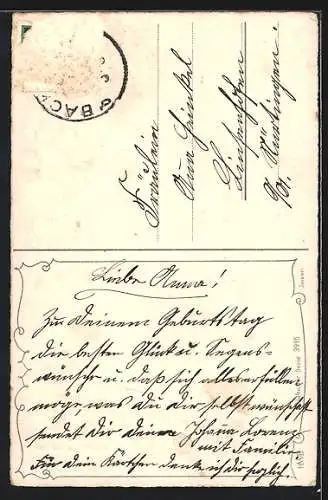 BACK
Fräulein
Anna Günkel
Linsenhofen
b/ Nürtingen
Liebe Anna!
Zu Deinem Geburtstag
die besten Glück u. Segens-
wünsche u. daß sich alles erfüllen
möge, was Du dir selbst wünschst
sendet Dir deine Johana Lorenz
mit Familie
Für dein Kärtchen danke ich dir herzlich.
Serie 3995